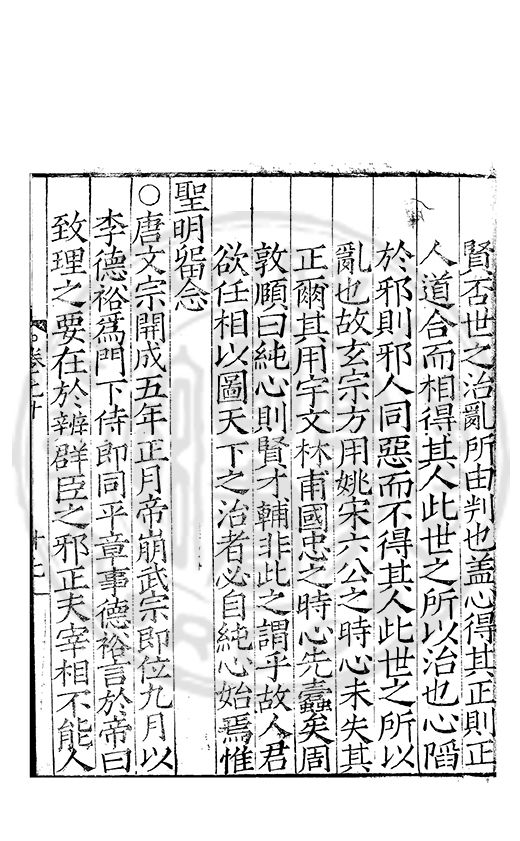 賢否世之治亂所由判也盖心得其正則正
人道合而相得其人此世之所以治也心䧟
於邪則邪人同惡而不得其人此世之所以
亂也故玄宗方用姚宋六公之時心未失其
正爾其用宇文林甫國忠之時心先蠹矣周
敦頤曰純心則賢才輔非此之謂乎故人君
欲任相以圖天下之治者必自純心始焉惟
聖明畱念
○唐文宗開成五年正月帝崩武宗即位九月以
李德裕爲門下侍郎同平章事德裕言於帝曰
致理之要在於辨羣臣之邪正夫宰相不能人